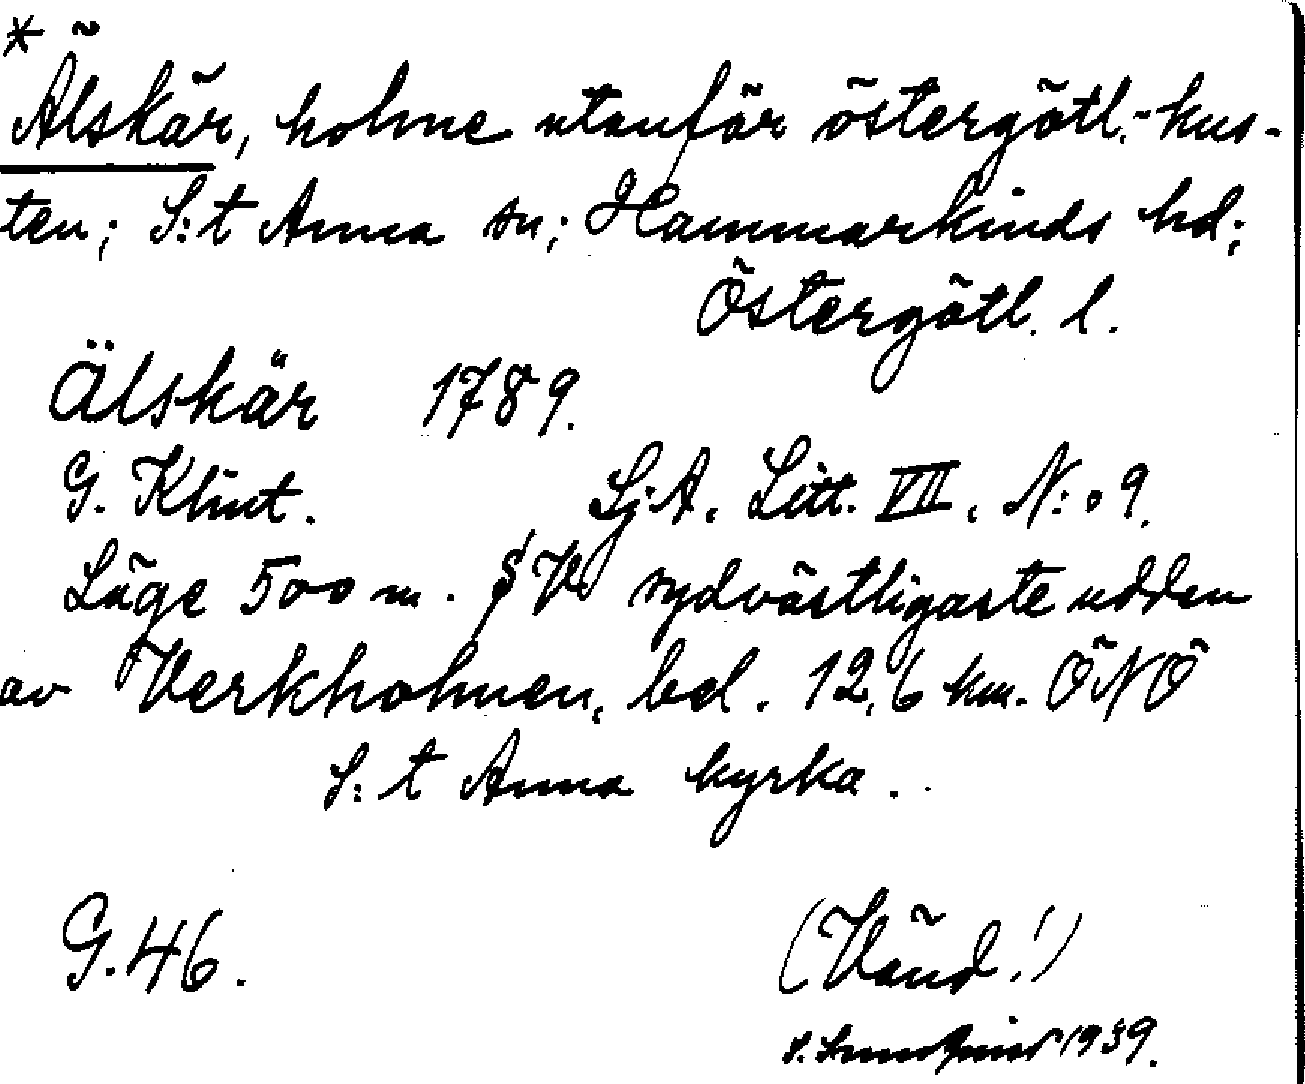 * Älskär, holme utanför östergötl.-kus-
ten; S:t Anna sn; Hammarkinds hd;
Östergötl. l.
Älskär 1789.
G. Klint. Sj.A. Litt. VII. N:o 9.
Läge 500 m. V sydvästligaste udden
av Verkholmen, bel. 12,6 km. ÖNÖ
S:t Anna kyrka.
G.46. (Vänd!)
1939.